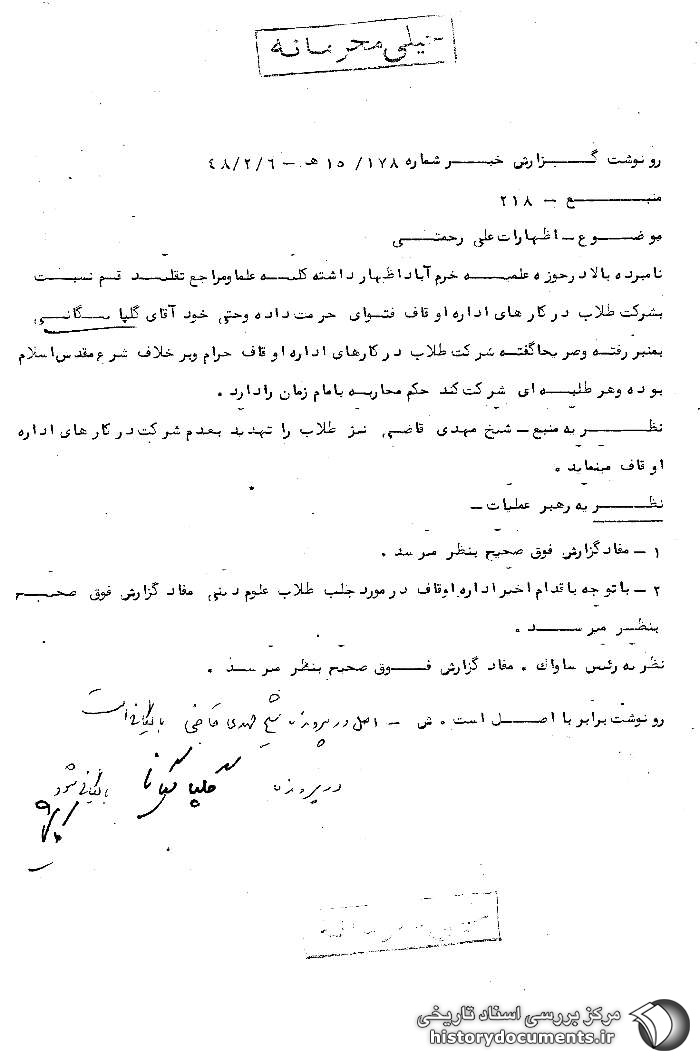 خیلی محرمانه
رونوشت گزارش خبر شماره ۱۷۸/ ۱۵ هـ – ۴۸/۲/۶
منبع – ۲۱۸
موضوع – اظهارات علی رحمتی
نامبرده بالا در حوزه علمیه خرم آباد اظهار داشته کلیه علما و مراجع تقلید قم نسبت
بشرکت طلاب در کارهای اداره اوقاف فتوای حرمت داده وحتی خود آقای گلپایگانی
بمنبر رفته وصریحا گفته شرکت طلاب در کارهای اداره اوقاف حرام وبر خلاف شرع مقدس اسلام
بوده وهر طلبه ای شرکت کند حکم محاربه با امام زمان را دارد .
نظریه منبع – شیخ مهدی قاضی نیز طلاب را تهدید بعدم شرکت در کارهای اداره
اوقاف مینماید .
نظریه رهبر عملیات –
۱ – مفاد گزارش فوق صحیح بنظر میرسد .
۲ – با توجه باقدام اخیر اداره اوقاف در مورد جلب طلاب علوم دینی مفاد گزارش فوق صحیح
بنظر میرسد .
نظریه رئیس ساواک . مفاد گزارش فوق صحیح بنظر میرسد .
رونوشت برابر با اصل است . ش – اصل در پرونده شیخ مهدی قاضی بایگانی است
در پرونده گلپایگانی بایگانی شود
خیلی محرمانه
مرکز بررسی اسناد تاریخی
historydocuments.ir